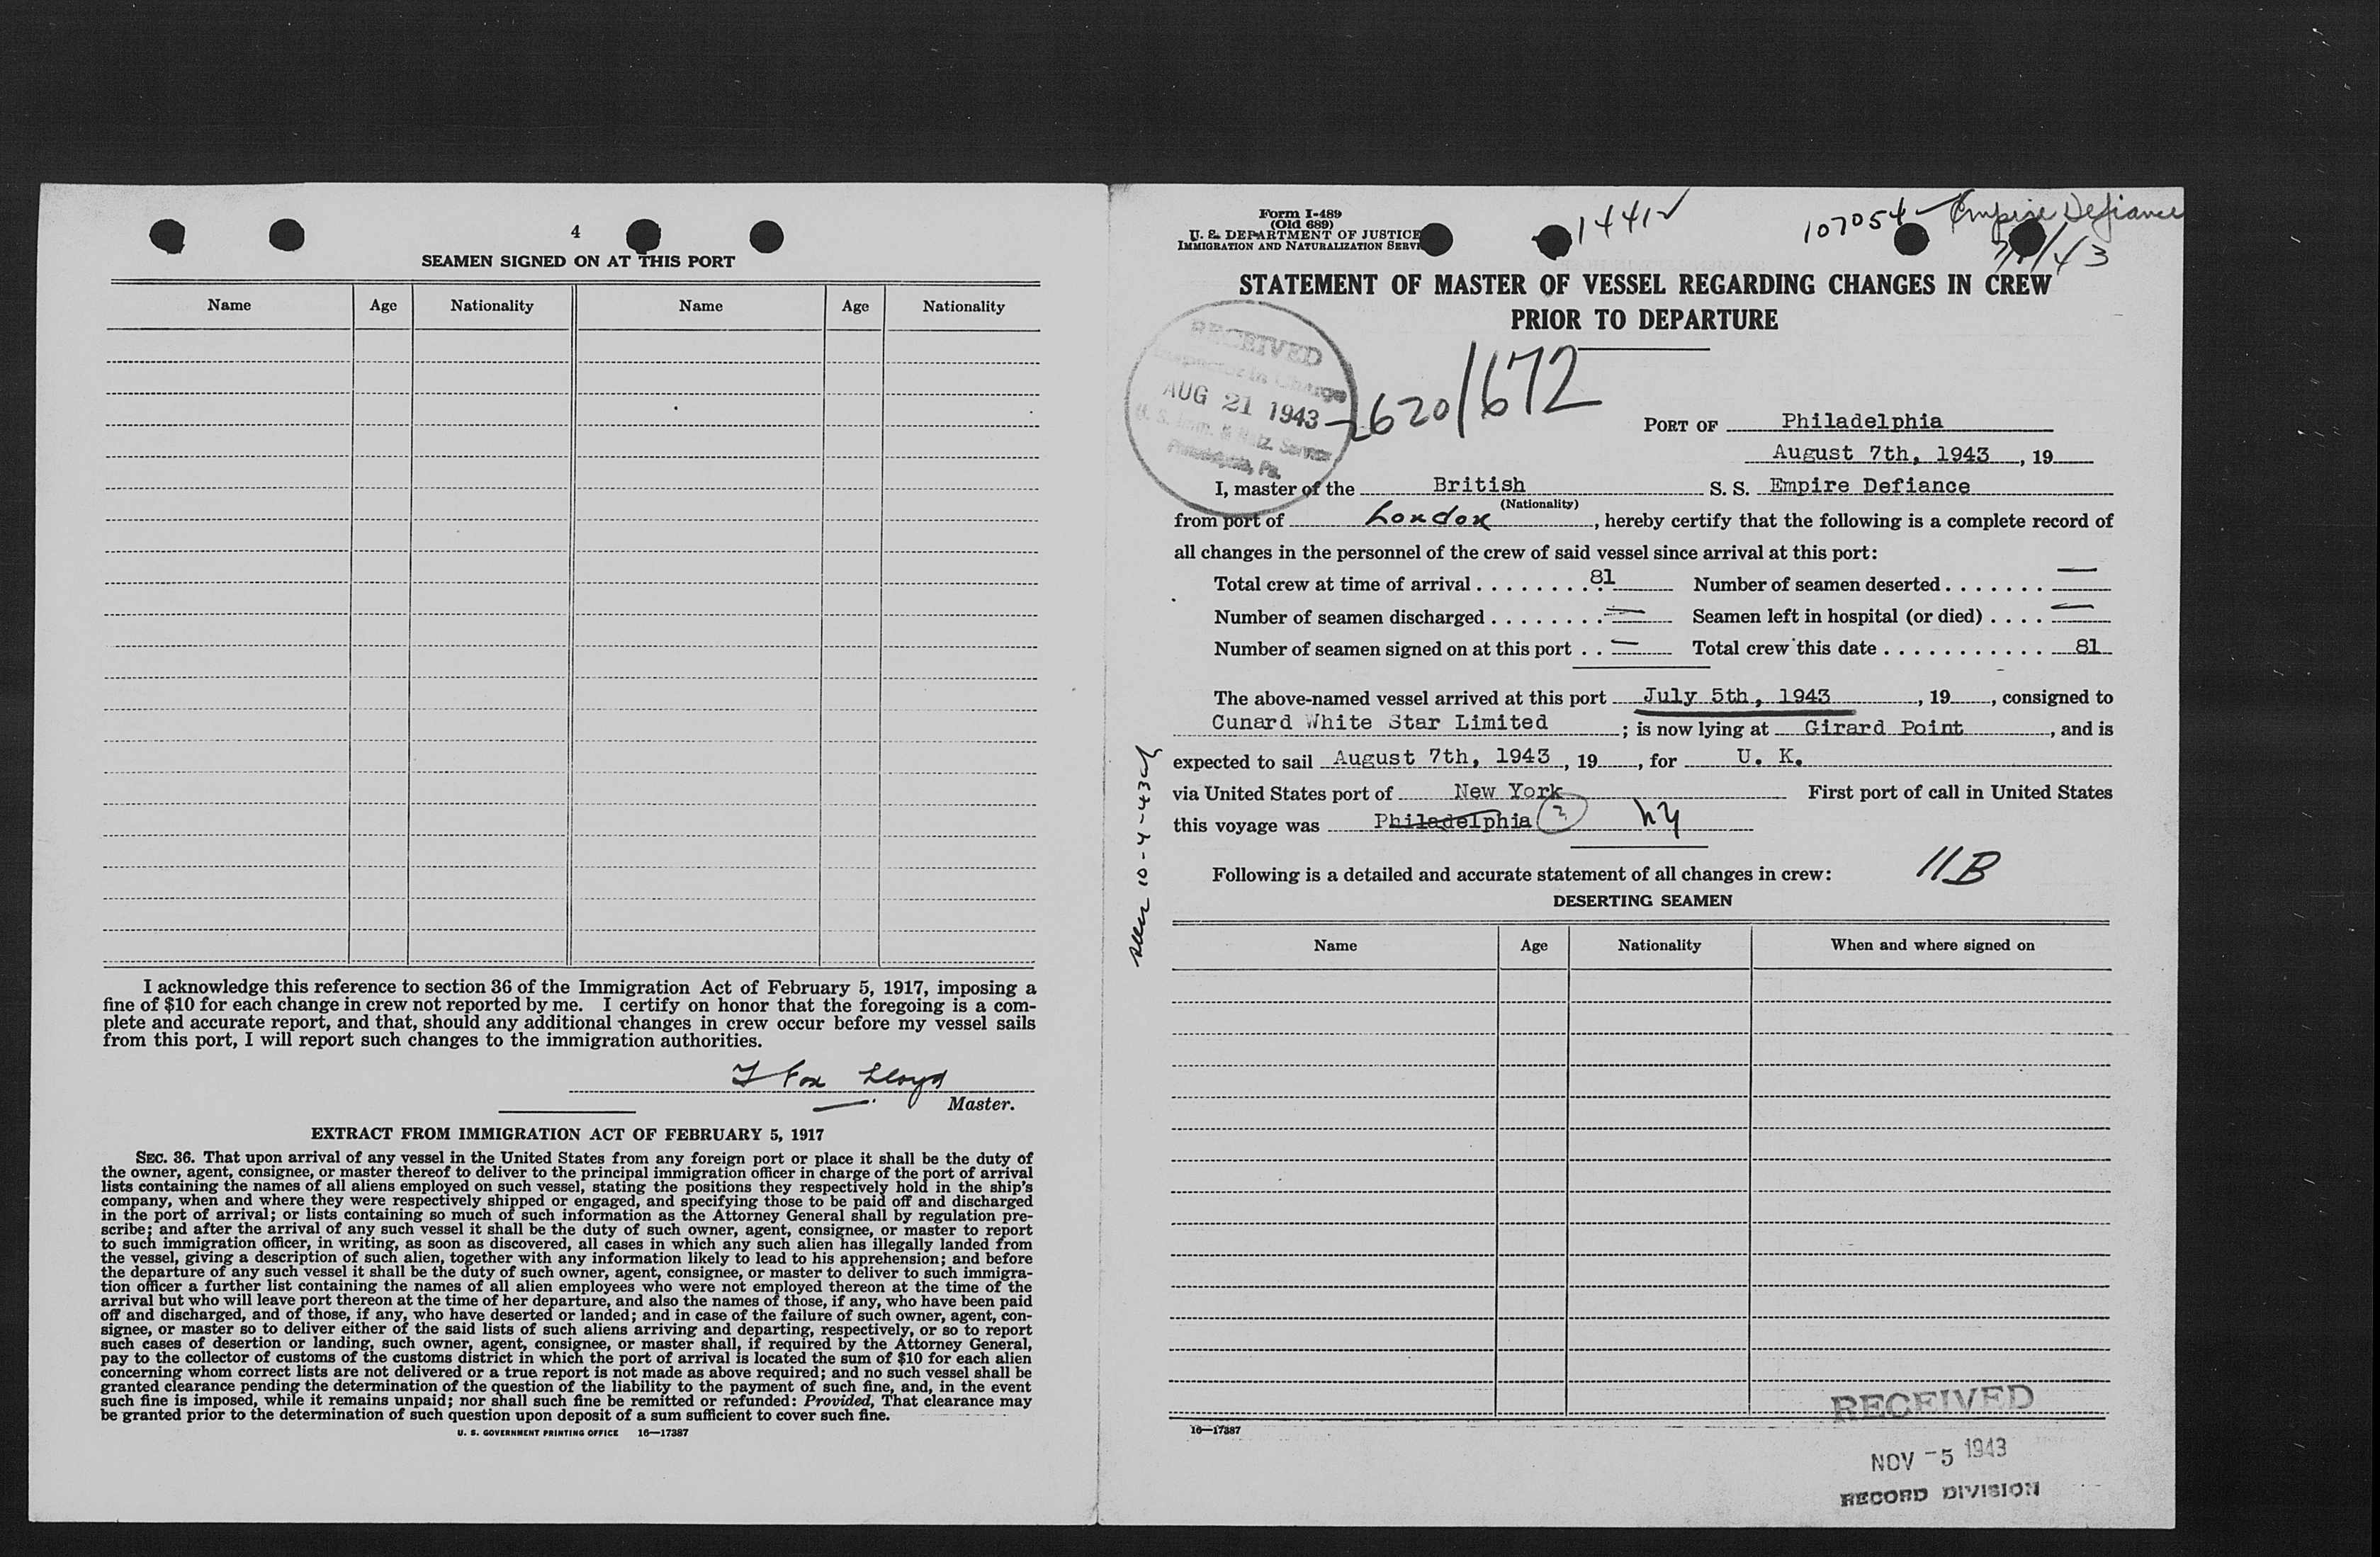 4
SEAMEN SIGNED ON AT THIS PORT
Name Age Nationality Name Age Nationality
I acknowledge this reference to section 36 of the Immigration Act of February 5, 1917, imposing a
fine of $10 for each change in crew not reported by me. I certify on honor that the foregoing is a com-
plete and accurate report, and that, should any additional changes in crew occur before my vessel sails
from this port, I will report such changes to the immigration authorities.
Fox Lloyd
Master.
EXTRACT FROM IMMIGRATION ACT OF FEBRUARY 5, 1917
SEC. 36. That upon arrival of any vessel in the United States from any foreign port or place it shall be the duty of
the owner, agent, consignee, or master thereof to deliver to the principal immigration officer in charge of the port of arrival
lists containing the names of all aliens employed on such vessel, stating the positions they respectively hold in the ship's
company, when and where they were respectively shipped or engaged, and specifying those to be paid off and discharged
in the port of arrival; or lists containing so much of such information as the Attorney General shall by regulation pre-
scribe; and after the arrival of any such vessel it shall be the duty of such owner, agent, consignee, or master to report
to such immigration officer, in writing, as soon as discovered, all cases in which any such alien has illegally landed from
the vessel, giving a description of such alien, together with any information likely to lead to his apprehension; and before
the departure of any such vessel it shall be the duty of such owner, agent, consignee, or master to deliver to such immigra-
tion officer a further list containing the names of all alien employees who were not employed thereon at the time of the
arrival but who will leave port thereon at the time of her departure, and also the names of those, if any, who have been paid
off and discharged, and of those, if any, who have deserted or landed; and in case of the failure of such owner, agent, con-
signee, or master so to deliver either of the said lists of such aliens arriving and departing, respectively, or so to report
such cases of desertion or landing, such owner, agent, consignee, or master shall, if required by the Attorney General,
pay to the collector of customs of the customs district in which the port of arrival is located the sum of $10 for each alien
concerning whom correct lists are not delivered or a true report is not made as above required; and no such vessel shall be
granted clearance pending the determination of the question of the liability to the payment of such fine, and, in the event
such fine is imposed, while it remains unpaid; nor shall such fine be remitted or refunded: Provided, That clearance may
be granted prior to the determination of such question upon deposit of a sum sufficient to cover such fine.
U. S. GOVERNMENT PRINTING OFFICE 16—17387
Form I-489
(Old 689)
U. S. DEPARTMENT OF JUSTICE
IMMIGRATION AND NATURALIZATION SERVI
1441
107054 Empire Defiance
/43
STATEMENT OF MASTER OF VESSEL REGARDING CHANGES IN CREW
PRIOR TO DEPARTURE
RECEIVED
Inspector in Charge
AUG 21 1943
U. S. Imm. & Natz. Service
Philadelphia, Pa.
2620/672
PORT OF Philadelphia
August 7th, 1943, 19
I, master of the British S. S. Empire Defiance
(Nationality)
from port of London, hereby certify that the following is a complete record of
all changes in the personnel of the crew of said vessel since arrival at this port:
Total crew at time of arrival . . . . . . . . . 81 Number of seamen deserted . . . . . . . —
Number of seamen discharged . . . . . . . . — Seamen left in hospital (or died) . . . . —
Number of seamen signed on at this port . . — Total crew this date . . . . . . . . . . . . 81
The above-named vessel arrived at this port July 5th, 1943, 19, consigned to
Cunard White Star Limited; is now lying at Girard Point, and is
expected to sail August 7th, 1943, 19, for U. K.
via United States port of New York First port of call in United States
this voyage was Philadelphia 2 ny
10-4-43
Following is a detailed and accurate statement of all changes in crew:
11B
DESERTING SEAMEN
Name Age Nationality When and where signed on
16—17387
RECEIVED
NOV -5 1943
RECORD DIVISION